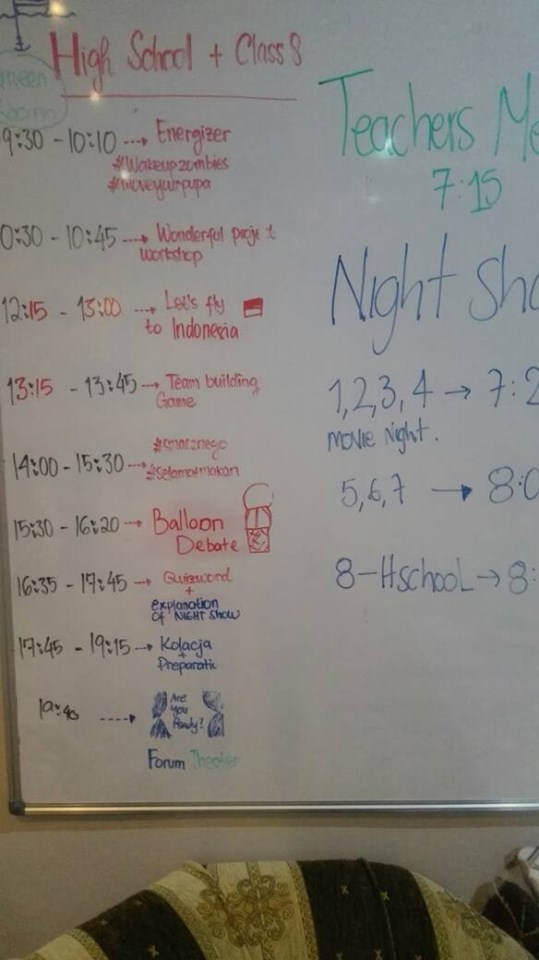 Green
Room
High School + Class 8
9:30 - 10:10 → Energizer
#Wakeupzombies
#moveyourpupa
0:30 - 10:45 → Wonderful project
workshop
12:15 - 13:00 → Let's fly
to Indonesia
13:15 - 13:45 → Team building
Game
14:00 - 15:30 → #smacznego
#selamatmakan
15:30 - 16:20 → Balloon
Debate
16:35 - 17:45 → Quizword
+
explanation
OF NIGHT SHOW
17:45 - 19:15 → Kolacja
+
Preparatic
19:45 → Are
You
Ready?
Forum Theater
Teachers Me
7:15
Night Sho
1,2,3,4 → 7:2
movie Night.
5,6,7 → 8:0
8-HschooL → 8: